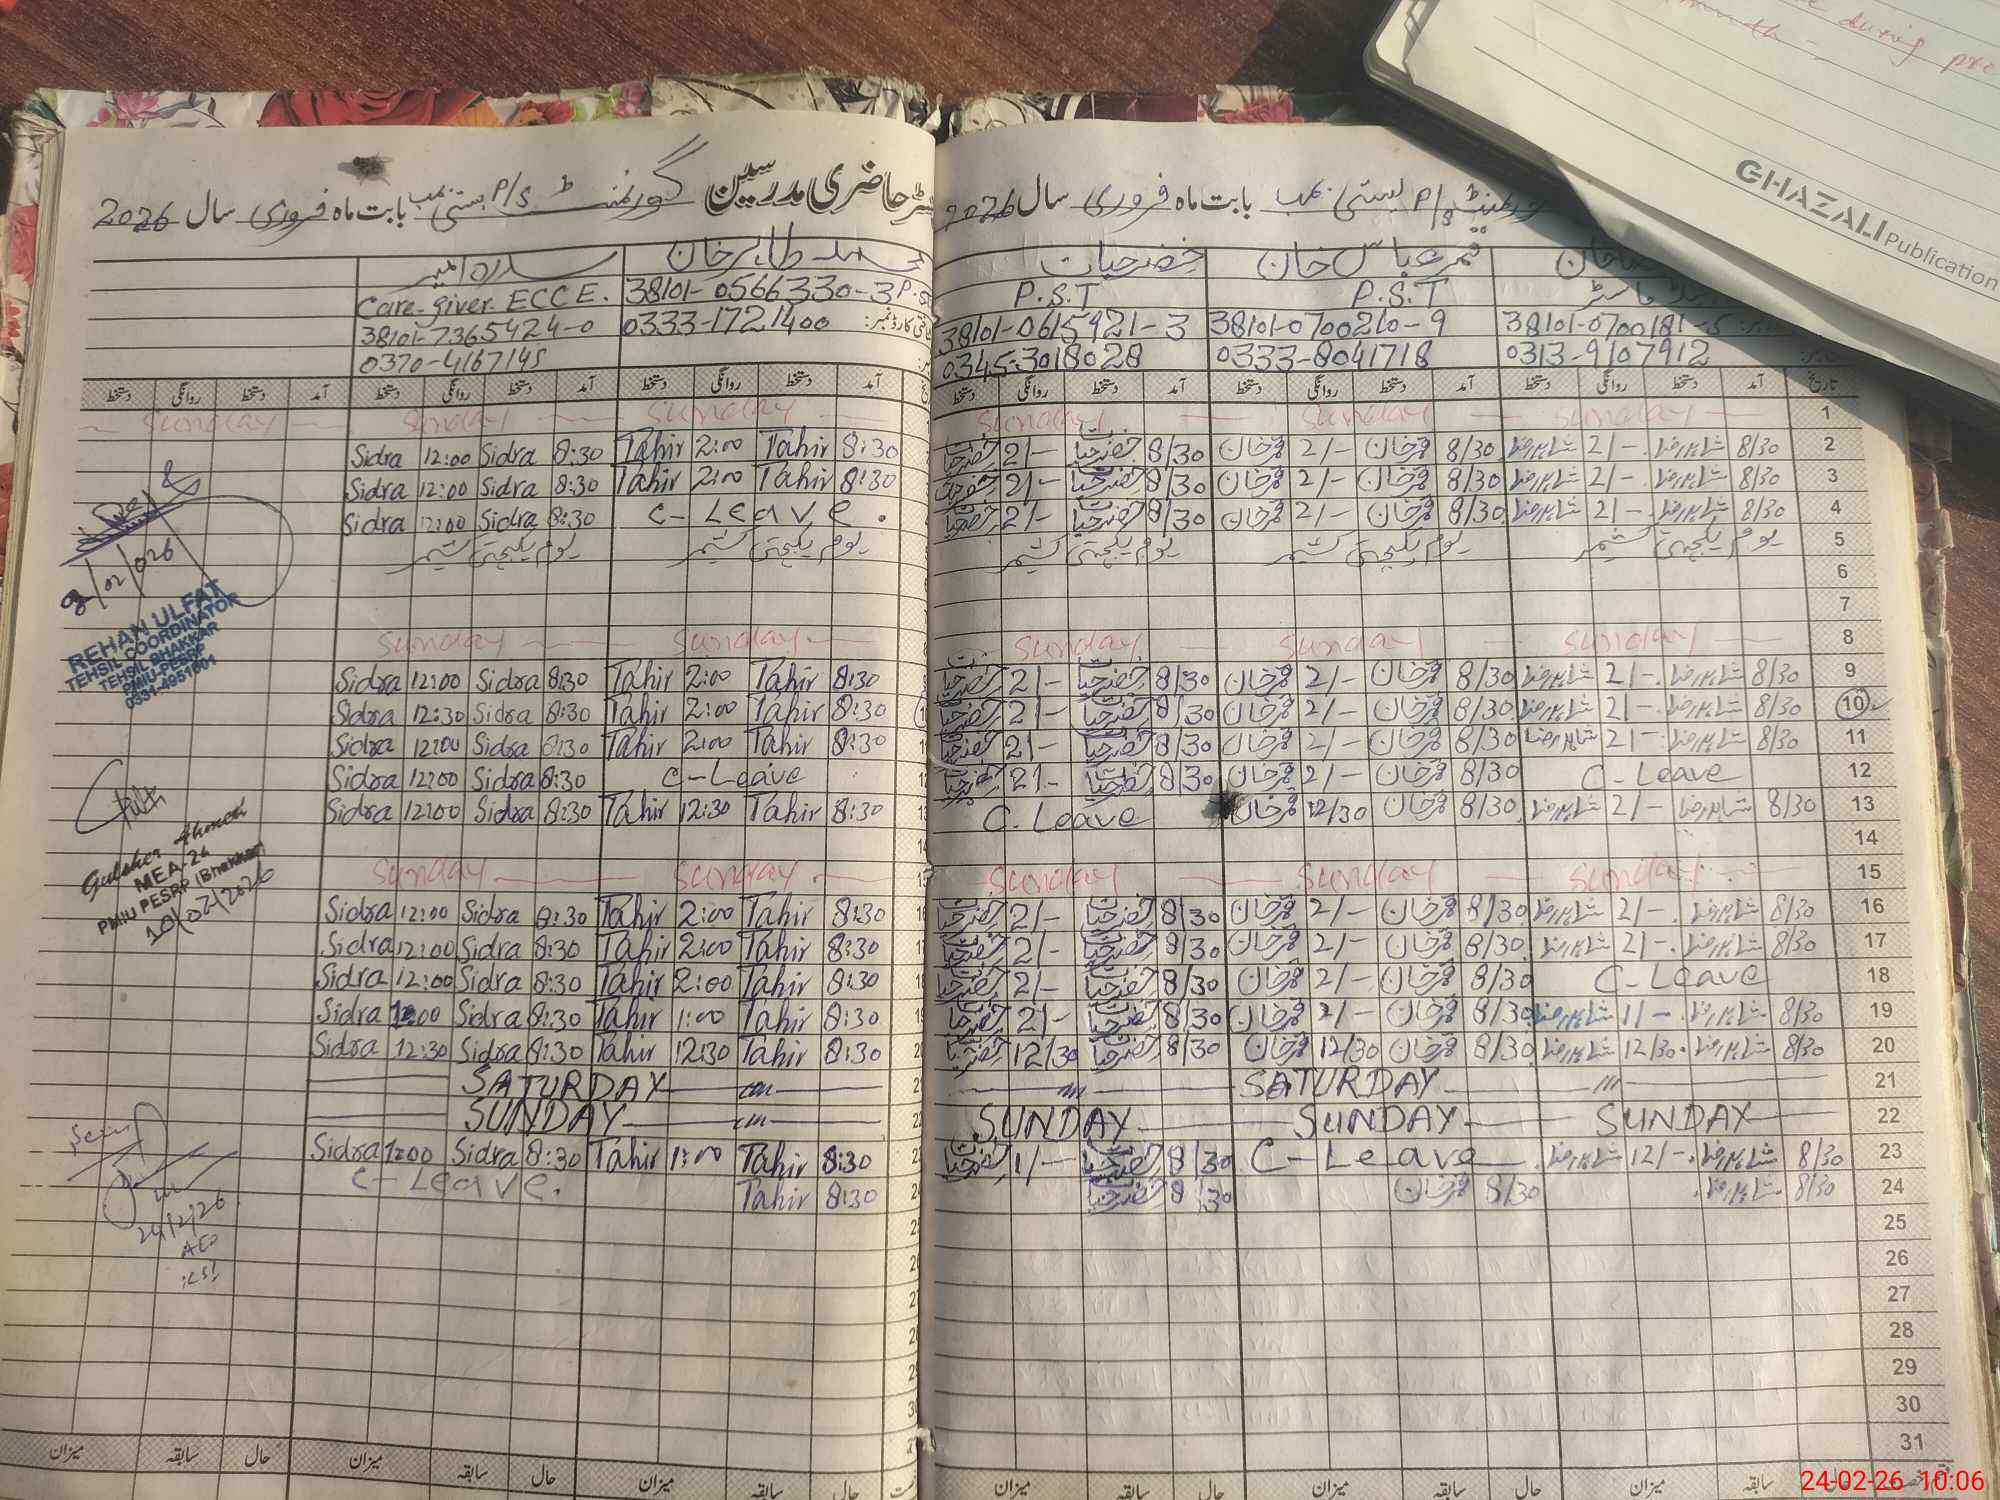 during pre
GHAZALI Publication
رجسٹر حاضری مدرسین گورنمنٹ P/S بستی بابت ماہ فروری سال 2026
P/S بستی بابت ماہ فروری سال 2026
سدرہ امیر
محمد طاہر خان
خضر حیات
قمر عباس خان
Care-giver ECCE.
P.S.T
P.S.T
38101-7365424-0
38101-0566330-3
38101-0615921-3
38101-0700210-9
38101-0700181-5
0370-4167145
0333-1721400
0345-3018028
0333-8041718
0313-9107912
دستخط روانگی دستخط آمد دستخط روانگی دستخط آمد دستخط روانگی دستخط آمد دستخط روانگی دستخط آمد دستخط روانگی دستخط آمد دستخط روانگی دستخط آمد تاریخ
Sunday Sunday Sunday Sunday Sunday Sunday 1
Sidra 12:00 Sidra 8:30 Tahir 2:00 Tahir 8:30 خضر حیات 2/- خضر حیات 8/30 قمر خان 2/- قمر خان 8/30 شاہد رضا 2/- شاہد رضا 8/30 2
Sidra 12:00 Sidra 8:30 Tahir 2:00 Tahir 8:30 خضر حیات 2/- خضر حیات 8/30 قمر خان 2/- قمر خان 8/30 شاہد رضا 2/- شاہد رضا 8/30 3
Sidra 12:00 Sidra 8:30 C-Leave. خضر حیات 2/- خضر حیات 8/30 قمر خان 2/- قمر خان 8/30 شاہد رضا 2/- شاہد رضا 8/30 4
یوم یکجہتی کشمیر یوم یکجہتی کشمیر یوم یکجہتی کشمیر یوم یکجہتی کشمیر یوم یکجہتی کشمیر 5
6
7
Sunday Sunday Sunday Sunday Sunday 8
Sidra 12:00 Sidra 8:30 Tahir 2:00 Tahir 8:30 خضر حیات 2/- خضر حیات 8/30 قمر خان 2/- قمر خان 8/30 شاہد رضا 2/- شاہد رضا 8/30 9
Sidra 12:30 Sidra 8:30 Tahir 2:00 Tahir 8:30 خضر حیات 2/- خضر حیات 8/30 قمر خان 2/- قمر خان 8/30 شاہد رضا 2/- شاہد رضا 8/30 10
Sidra 12:00 Sidra 8:30 Tahir 2:00 Tahir 8:30 خضر حیات 2/- خضر حیات 8/30 قمر خان 2/- قمر خان 8/30 شاہد رضا 2/- شاہد رضا 8/30 11
Sidra 12:00 Sidra 8:30 C-Leave خضر حیات 2/- خضر حیات 8/30 قمر خان 2/- قمر خان 8/30 C-Leave 12
Sidra 12:00 Sidra 8:30 Tahir 12:30 Tahir 8:30 C-Leave قمر خان 12/30 قمر خان 8/30 شاہد رضا 2/- شاہد رضا 8/30 13
14
Sunday Sunday Sunday Sunday Sunday 15
Sidra 12:00 Sidra 8:30 Tahir 2:00 Tahir 8:30 خضر حیات 2/- خضر حیات 8/30 قمر خان 2/- قمر خان 8/30 شاہد رضا 2/- شاہد رضا 8/30 16
Sidra 12:00 Sidra 8:30 Tahir 2:00 Tahir 8:30 خضر حیات 2/- خضر حیات 8/30 قمر خان 2/- قمر خان 8/30 شاہد رضا 2/- شاہد رضا 8/30 17
Sidra 12:00 Sidra 8:30 Tahir 2:00 Tahir 8:30 خضر حیات 2/- خضر حیات 8/30 قمر خان 2/- قمر خان 8/30 C-Leave 18
Sidra Sidra 8:30 Tahir 1:00 Tahir 8:30 خضر حیات 2/- خضر حیات 8/30 قمر خان 2/- قمر خان 8/30 شاہد رضا 1/- شاہد رضا 8/30 19
Sidra 12:30 Sidra 8:30 Tahir 12:30 Tahir 8:30 خضر حیات 12/30 خضر حیات 8/30 قمر خان 12/30 قمر خان 8/30 شاہد رضا 12/30 شاہد رضا 8/30 20
SATURDAY SATURDAY 21
SUNDAY SUNDAY SUNDAY SUNDAY 22
Sidra Sidra 8:30 Tahir Tahir 8:30 خضر حیات 1/- خضر حیات 8/30 C-Leave شاہد رضا 12/- شاہد رضا 8/30 23
C-Leave. Tahir 8:30 خضر حیات 8/30 قمر خان 8/30 شاہد رضا 8/30 24
25
26
27
28
29
30
31
میزان سابقہ حال میزان سابقہ حال میزان سابقہ حال میزان سابقہ حال میزان سابقہ حال میزان سابقہ
/02/026
REHAN ULFAT
TEHSIL COORDINATOR
TEHSIL BHAKKAR
PMIU-PESRP
0331-4951601
Gulsher Ahmed
MEA-26
PMIU PESRP (Bhakkar)
10/02/2026
Seen
24/2/26
AEO
24-02-26 10:06